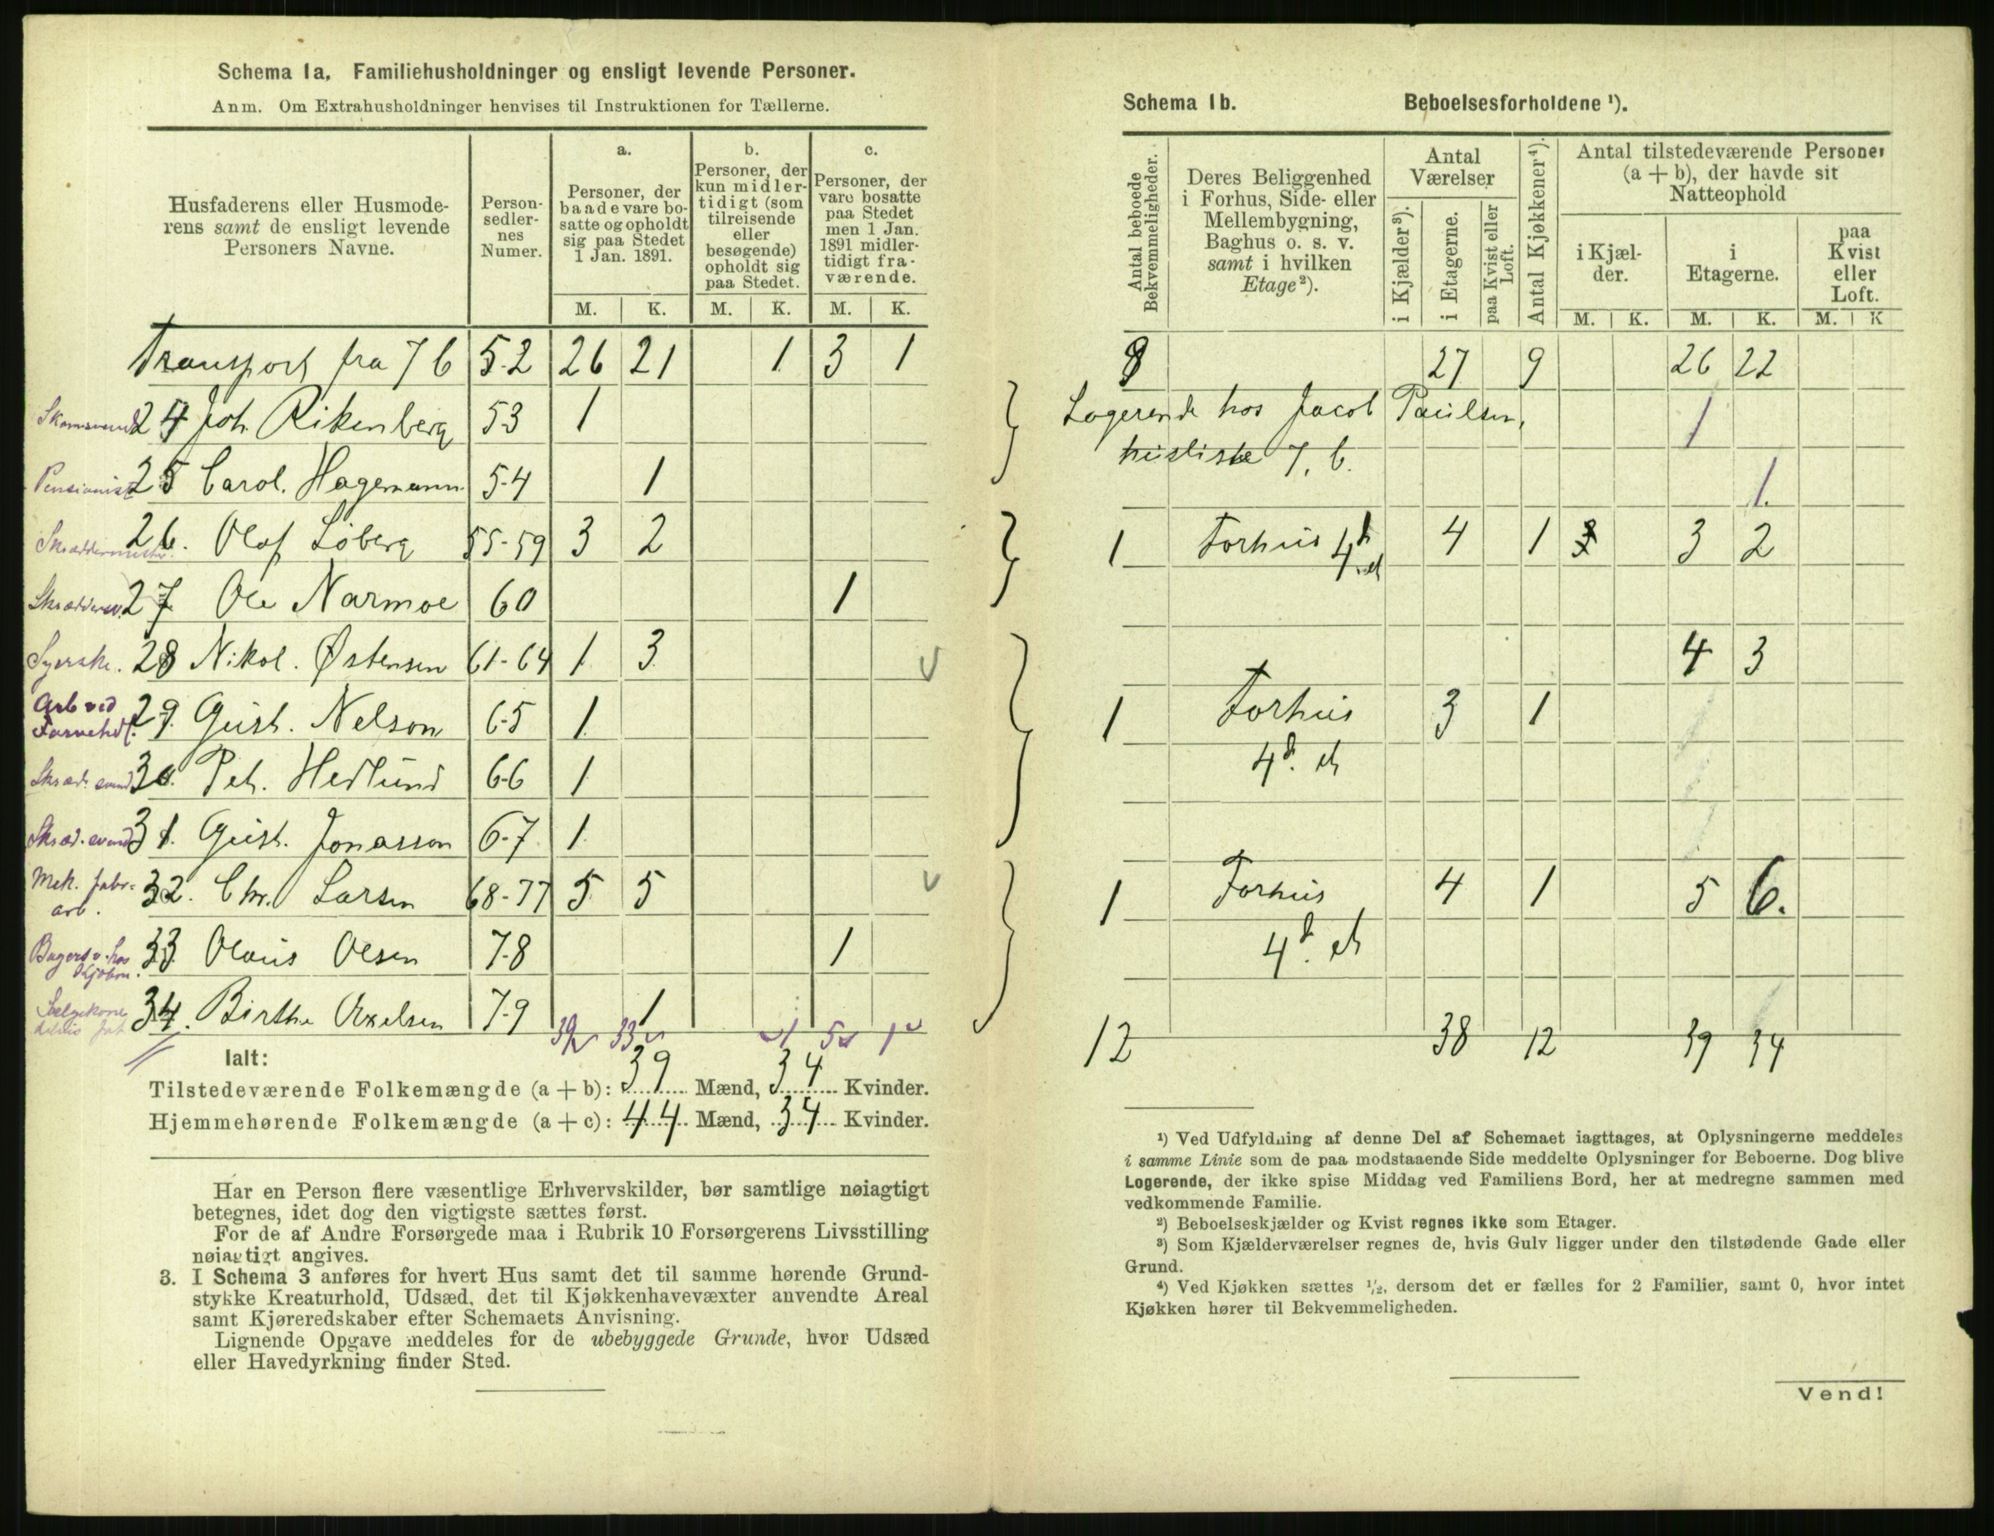 Schema 1a. Familiehusholdninger og ensligt levende Personer.
Anm. Om Extrahusholdninger henvises til Instruktionen for Tællerne.
Husfaderens eller Husmode-
rens samt de ensligt levende
Personers Navne.
Person-
sedler-
nes
Numer.
a.
Personer, der
baade vare bo-
satte og opholdt
sig paa Stedet
1 Jan. 1891.
b.
Personer, der
kun midler-
tidigt (som
tilreisende
eller
besøgende)
opholdt sig
paa Stedet.
c.
Personer, der
vare bosatte
paa Stedet
men 1 Jan.
1891 midler-
tidigt fra-
værende.
M. K. M. K. M. K.
Transport fra 7 b 52 26 21 1 3 1
24 Joh. Rikenberg 53 1
Pensionist 25 Carol. Hagemann 54 1
Skræddermester. 26. Olaf Löberg 55-59 3 2
Skræddersv. 27 Ole Narmoe 60 1
Syerske. 28 Nikol. Østensen 61-64 1 3
Arb ved
29. Gust. Nelson 65 1
Skræd. svend 30. Pet. Hedlund 66 1
Skræd. svend 31. Gust. Jonasson 67 1
Mek. fabr-
arb. 32. Chr. Larsen 68-77 5 5
33 Olaus Olsen 78 1
34. Birthe Axelsen 79 1
39 33 1 5 1
Ialt:
Tilstedeværende Folkemængde (a + b): 39 Mænd, 34 Kvinder.
Hjemmehørende Folkemængde (a + c): 44 Mænd, 34 Kvinder.
Har en Person flere væsentlige Erhvervskilder, bør samtlige nøiagtigt
betegnes, idet dog den vigtigste sættes først.
For de af Andre Forsørgede maa i Rubrik 10 Forsørgerens Livsstilling
nøiagtigt angives.
3. I Schema 3 anføres for hvert Hus samt det til samme hørende Grund-
stykke Kreaturhold, Udsæd, det til Kjøkkenhavevæxter anvendte Areal
samt Kjøreredskaber efter Schemaets Anvisning.
Lignende Opgave meddeles for de ubebyggede Grunde, hvor Udsæd
eller Havedyrkning finder Sted.
Schema 1b. Beboelsesforholdene ¹).
Antal beboede
Bekvemmeligheder.
Deres Beliggenhed
i Forhus, Side- eller
Mellembygning,
Baghus o. s. v.
samt i hvilken
Etage²).
Antal
Værelser
i Kjælder³).
i Etagerne.
paa Kvist eller
Loft.
Antal Kjøkkener⁴).
Antal tilstedeværende Personer
(a + b), der havde sit
Natteophold
i Kjæl-
der.
i
Etagerne.
paa
Kvist
eller
Loft.
M. K. M. K. M. K
9 27 9 26 22
Logerende hos Jacob Paulsen, 1
husliste 7. b. 1.
1 Forhus 4d et 4 1 3 2
4 3
1 Forhus 3 1
4d. et
1 Forhus 4 1 5 6.
4d. et
12 38 12 39 34
¹) Ved Udfyldning af denne Del af Schemaet iagttages, at Oplysningerne meddeles
i samme Linie som de paa modstaaende Side meddelte Oplysninger for Beboerne. Dog blive
Logerende, der ikke spise Middag ved Familiens Bord, her at medregne sammen med
vedkommende Familie.
²) Beboelseskjælder og Kvist regnes ikke som Etager.
³) Som Kjælderværelser regnes de, hvis Gulv ligger under den tilstødende Gade eller
Grund.
⁴) Ved Kjøkken sættes ¹/₂, dersom det er fælles for 2 Familier, samt 0, hvor intet
Kjøkken hører til Bekvemmeligheden.
Vend!